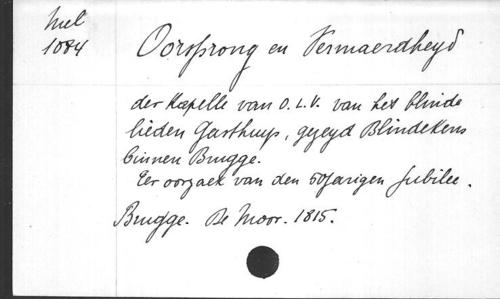 Mel
1084
Oorsprong en Vermaerdheyd
der Kapelle van O.L.V. van het blinde
lieden Gasthuys, gezeyd Blindekens
binnen Brugge.
Ter oorzaek van den 50jarigen Jubilee.
Brugge. De Moor. 1815.